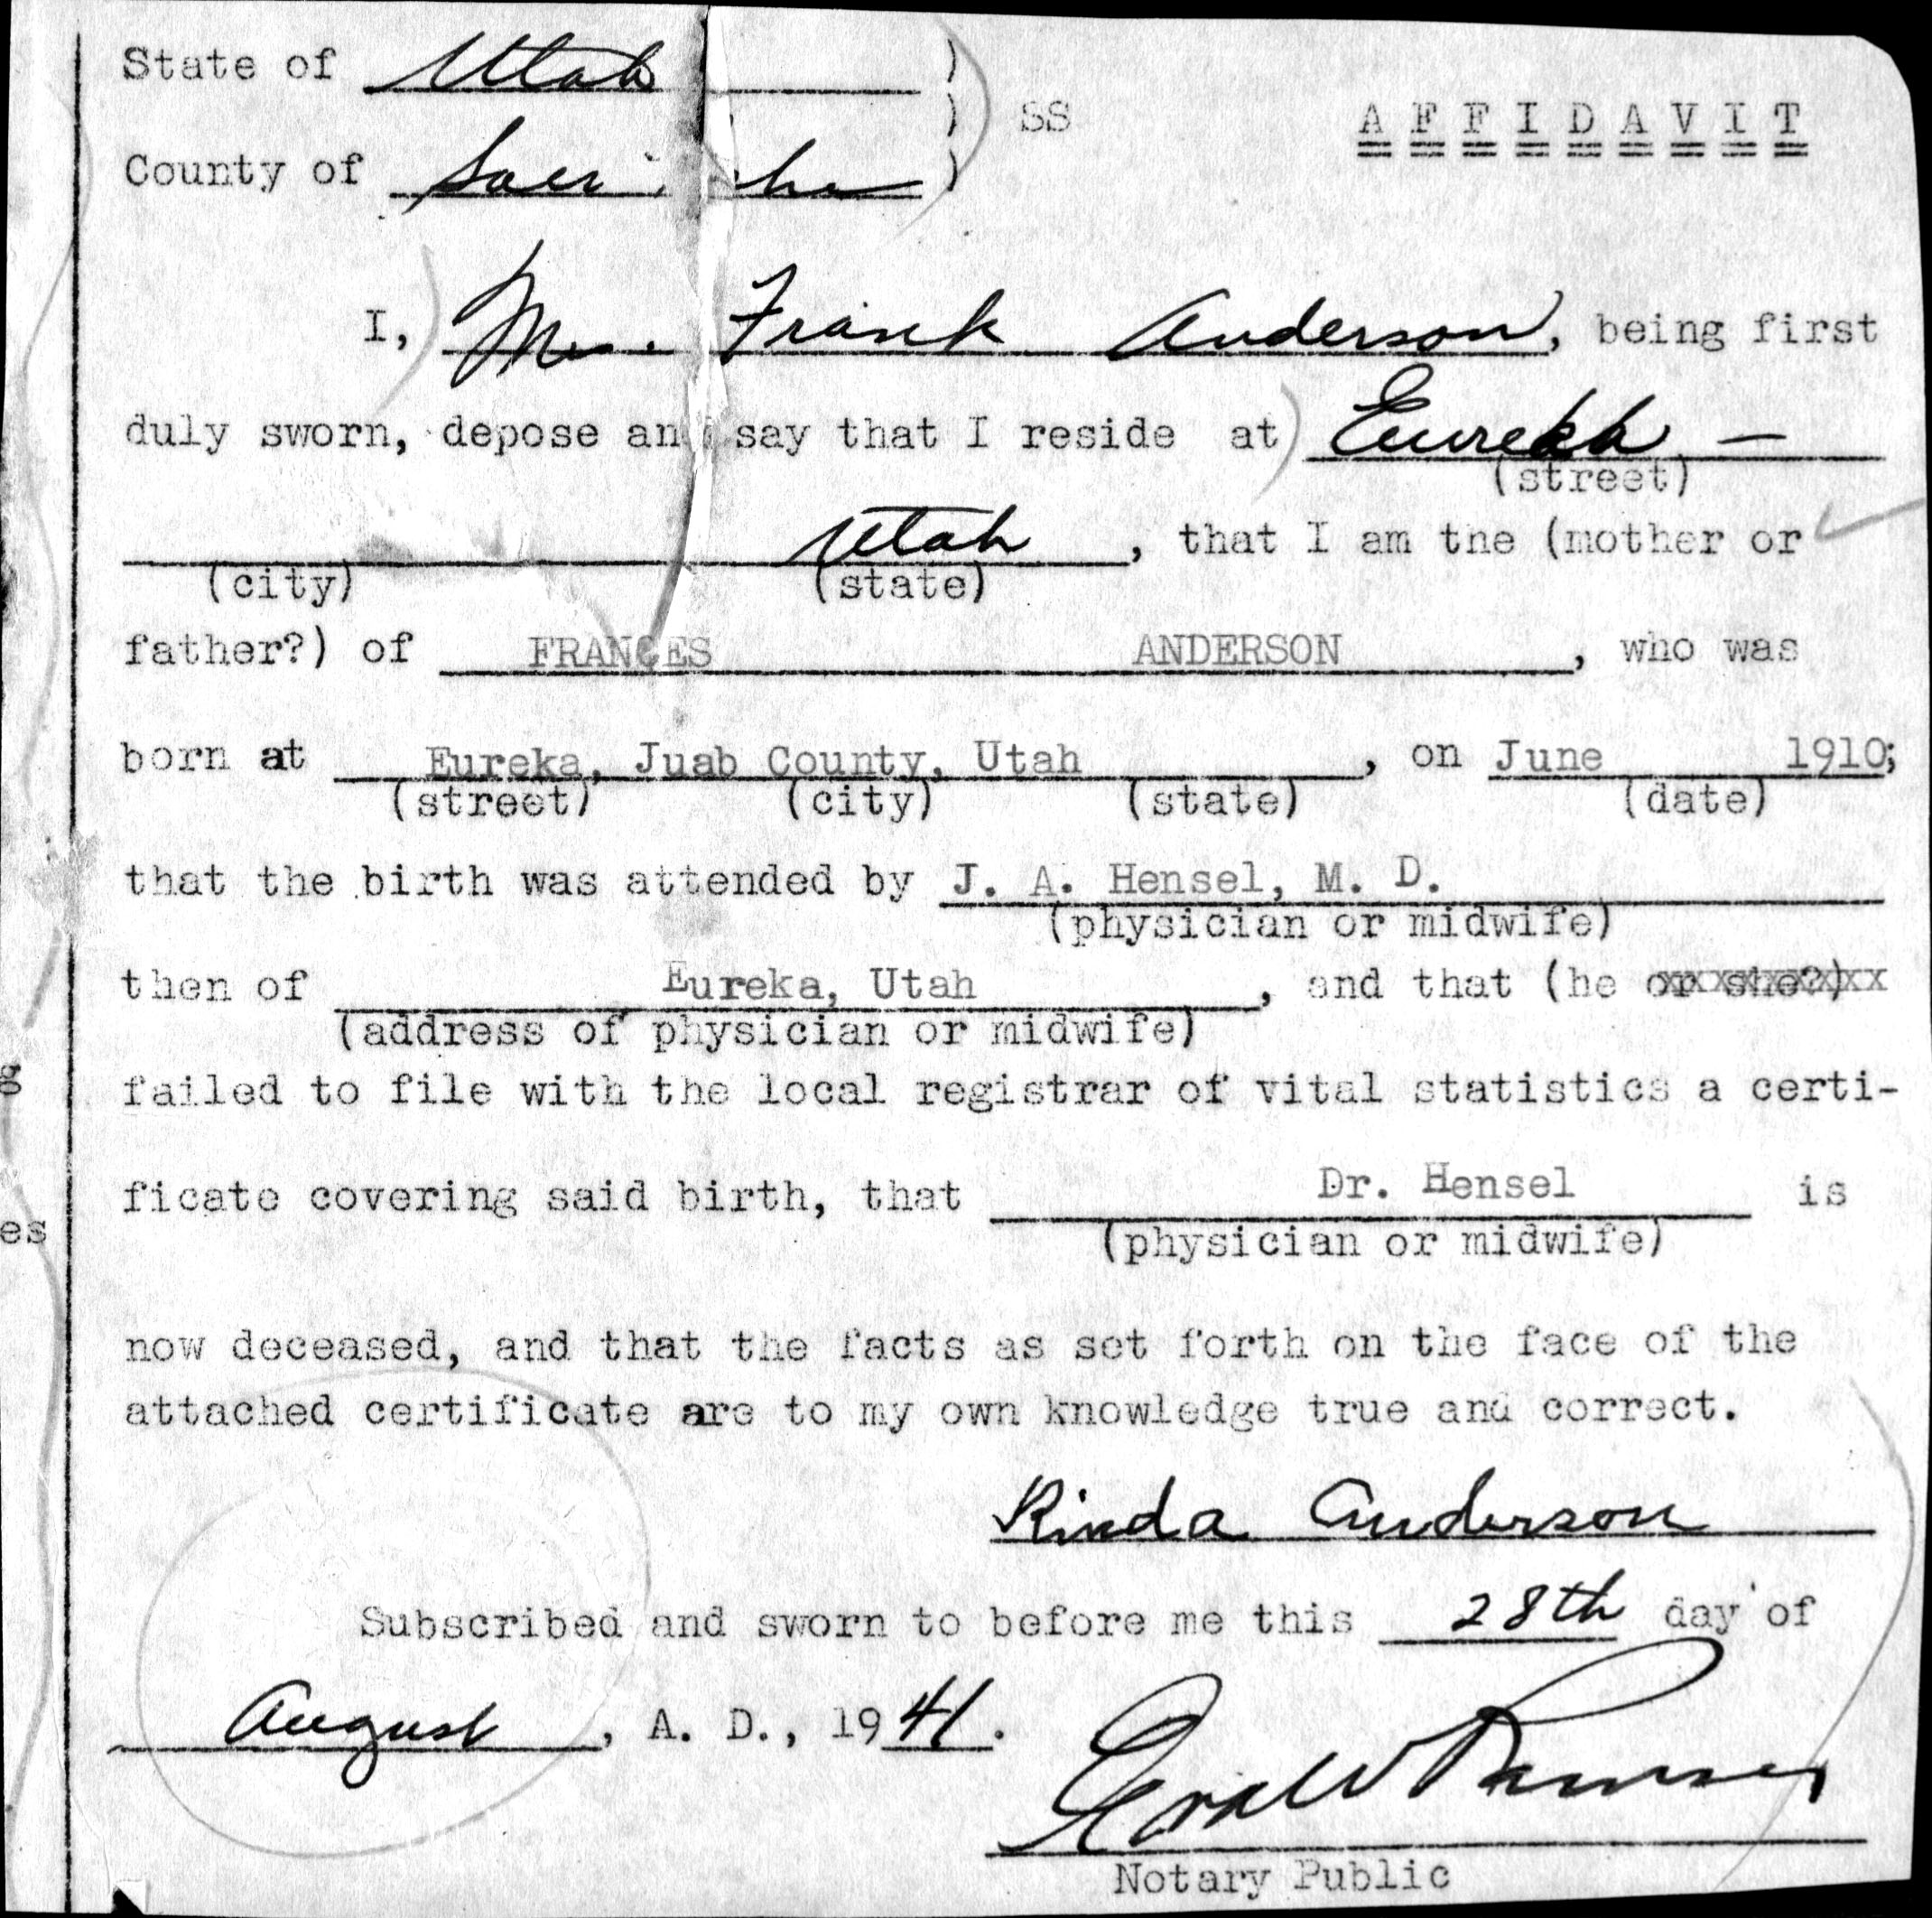 State of Utah )
) SS A F F I D A V I T
County of )
I, Mrs. Frank Anderson, being first
duly sworn, depose and say that I reside at Eureka —
(street)
Utah, that I am the (mother or
(city) (state)
father?) of FRANCES ANDERSON, who was
born at Eureka, Juab County, Utah, on June 1910;
(street) (city) (state) (date)
that the birth was attended by J. A. Hensel, M. D.
(physician or midwife)
then of Eureka, Utah, and that (he or she?)
(address of physician or midwife)
failed to file with the local registrar of vital statistics a certi-
ficate covering said birth, that Dr. Hensel is
(physician or midwife)
now deceased, and that the facts as set forth on the face of the
attached certificate are to my own knowledge true and correct.
Rinda Anderson
Subscribed and sworn to before me this 28th day of
August, A. D., 1941.
Notary Public
g
es